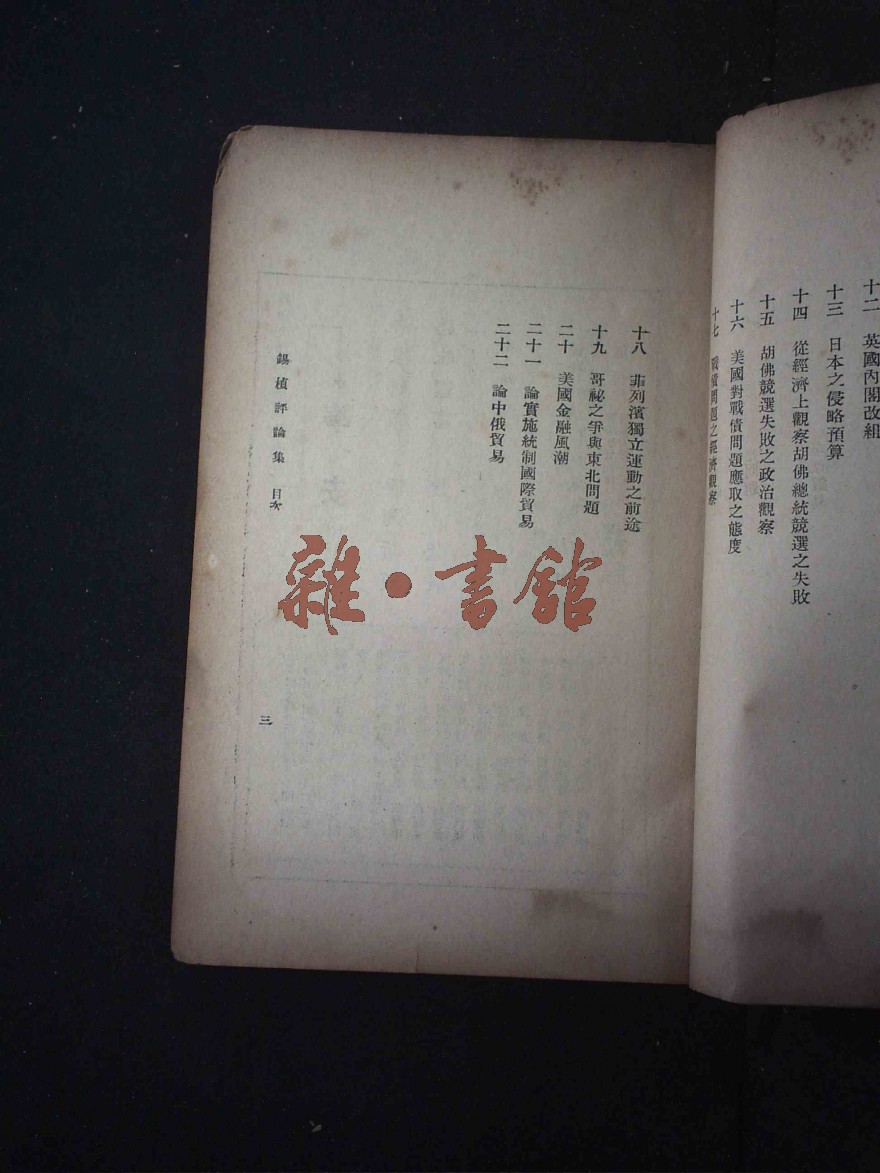 十二 英國內閣改組
十三 日本之侵略預算
十四 從經濟上觀察胡佛總統競選之失敗
十五 胡佛競選失敗之政治觀察
十六 美國對戰債問題應取之態度
十七 戰債問題之經濟觀察
十八 菲列濱獨立運動之前途
十九 哥祕之爭與東北問題
二十 美國金融風潮
二十一 論實施統制國際貿易
二十二 論中俄貿易
錫楨評論集 目次
三
雜·書館